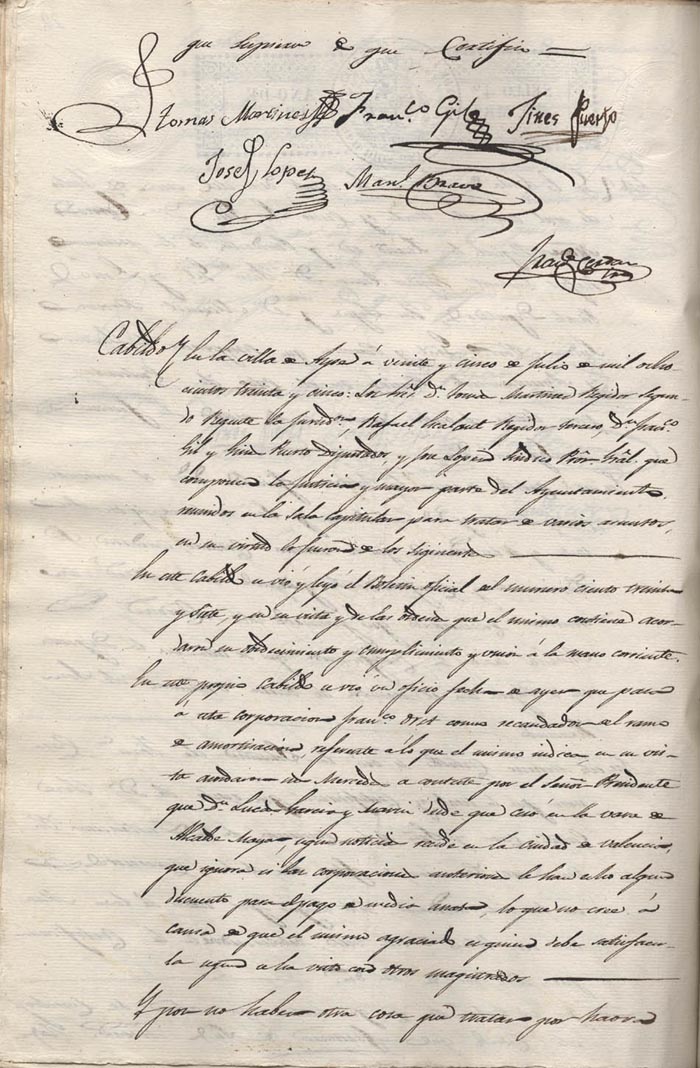 que supieron de que Certifico =
Tomas Martinez Fran.co Gil Jines Puerto
Josef Lopez Man.l Bravo
Cabildo En la villa de Aspe á veinte y cinco de Julio de mil ocho
cientos treinta y cinco: Los Sres. D.n Tomas Martinez Regidor segun
do Regente la Jurisd.n, Rafael Regidor tercero, D.n Fran.co
Gil y Gines Puerto Diputados, y José Lopez Sindico Pror. Gral. que
componen la Justicia y mayor parte del Ayuntamiento
reunidos en la Sala Capitular para tratar de varios asuntos,
en su virtud lo fueron de los siguientes
En este Cabildo se vió y leyó el Boletin oficial del numero ciento treinta
y siete, y en su vista y de las ordenes que el mismo contiene acor-
daron su obedecimiento y cumplimiento y unión á la mano corriente.
En este propio Cabildo se vió un oficio fecha de ayer que pasa
á esta corporacion Fran.co como recaudador del ramo
de amortización referente á lo que el mismo indica, en su vis-
ta acordaron sus Mercedes se conteste por el Señor Presidente
que D.n Lucas Garcia y desde que cesó en la vara de
Alcalde Mayor, segun noticias reside en la ciudad de Valencia,
que ignora si las corporaciones anteriores le han echo algun
descuento para el pago de media Anata, lo que no cree á
causa de que el mismo agraciado es quien debe satisfacer-
la segun se ha visto con otros magistrados
Y por no haber otra cosa que tratar por haora